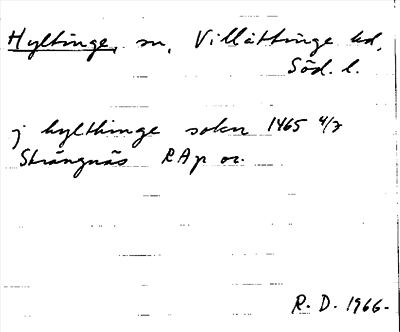 Hyltinge, sn, Villåttinge hd,
Söd. l.
j hylthinge sokn 1465 4/7
Strängnäs RAp or.
R. D. 1966.